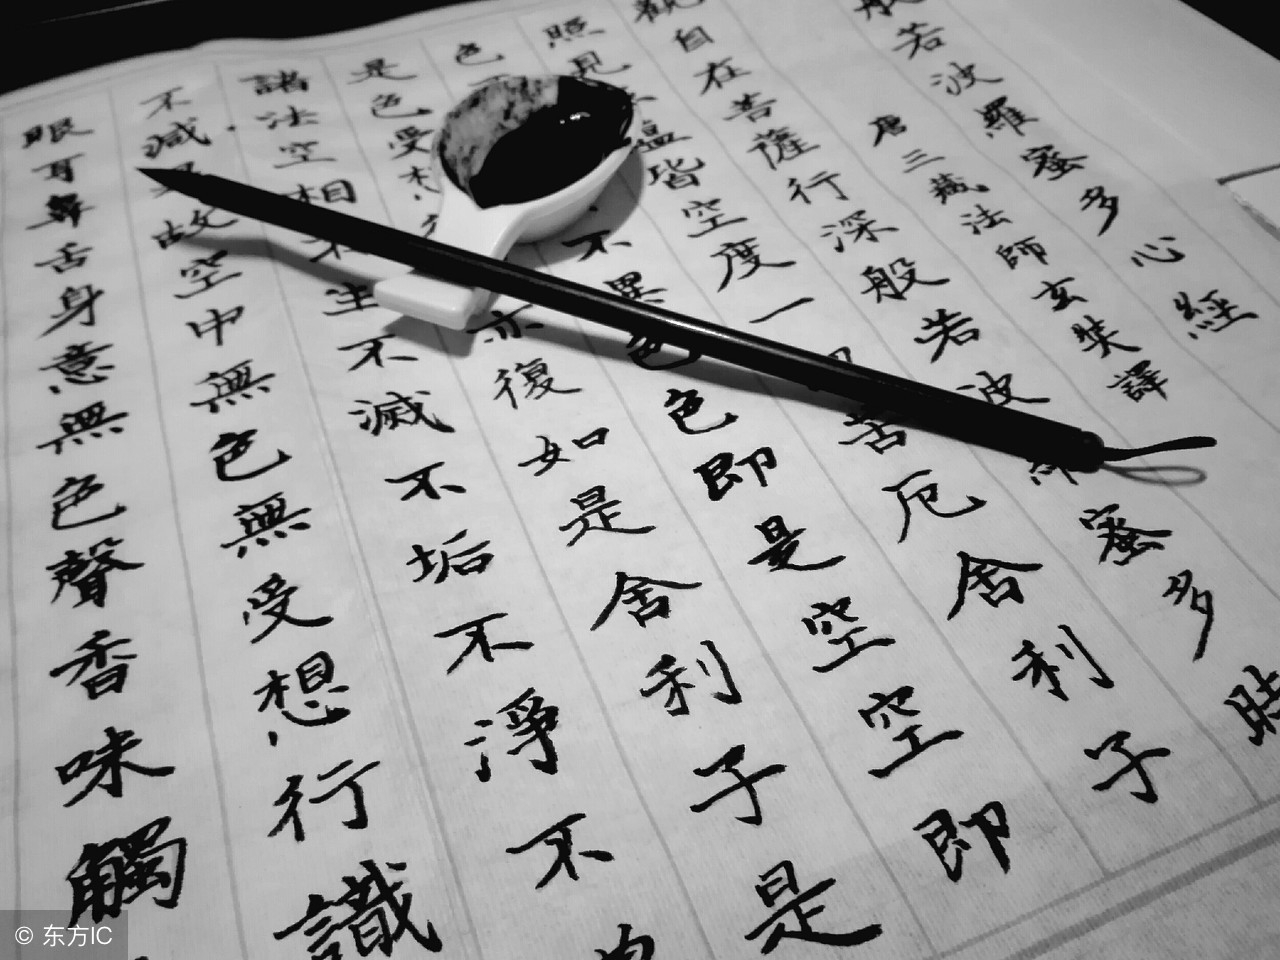 般若波羅蜜多心經
唐三藏法師玄奘譯
觀自在菩薩行深般若波蜜多時
照見蘊皆空度一苦厄舍利子
色不異色色即是空空即
是色受想亦復如是舍利子是
諸法空相不生不滅不垢不淨不
不減是故空中無色無受想行識
眼耳鼻舌身意無色聲香味觸
© 东方IC